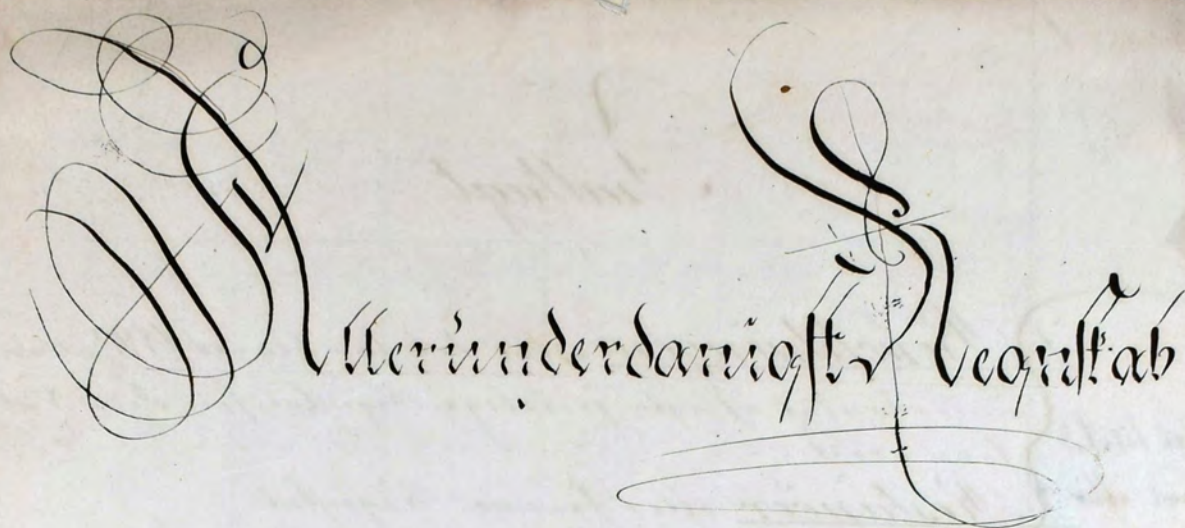 Allerunderdanigst Regnskab